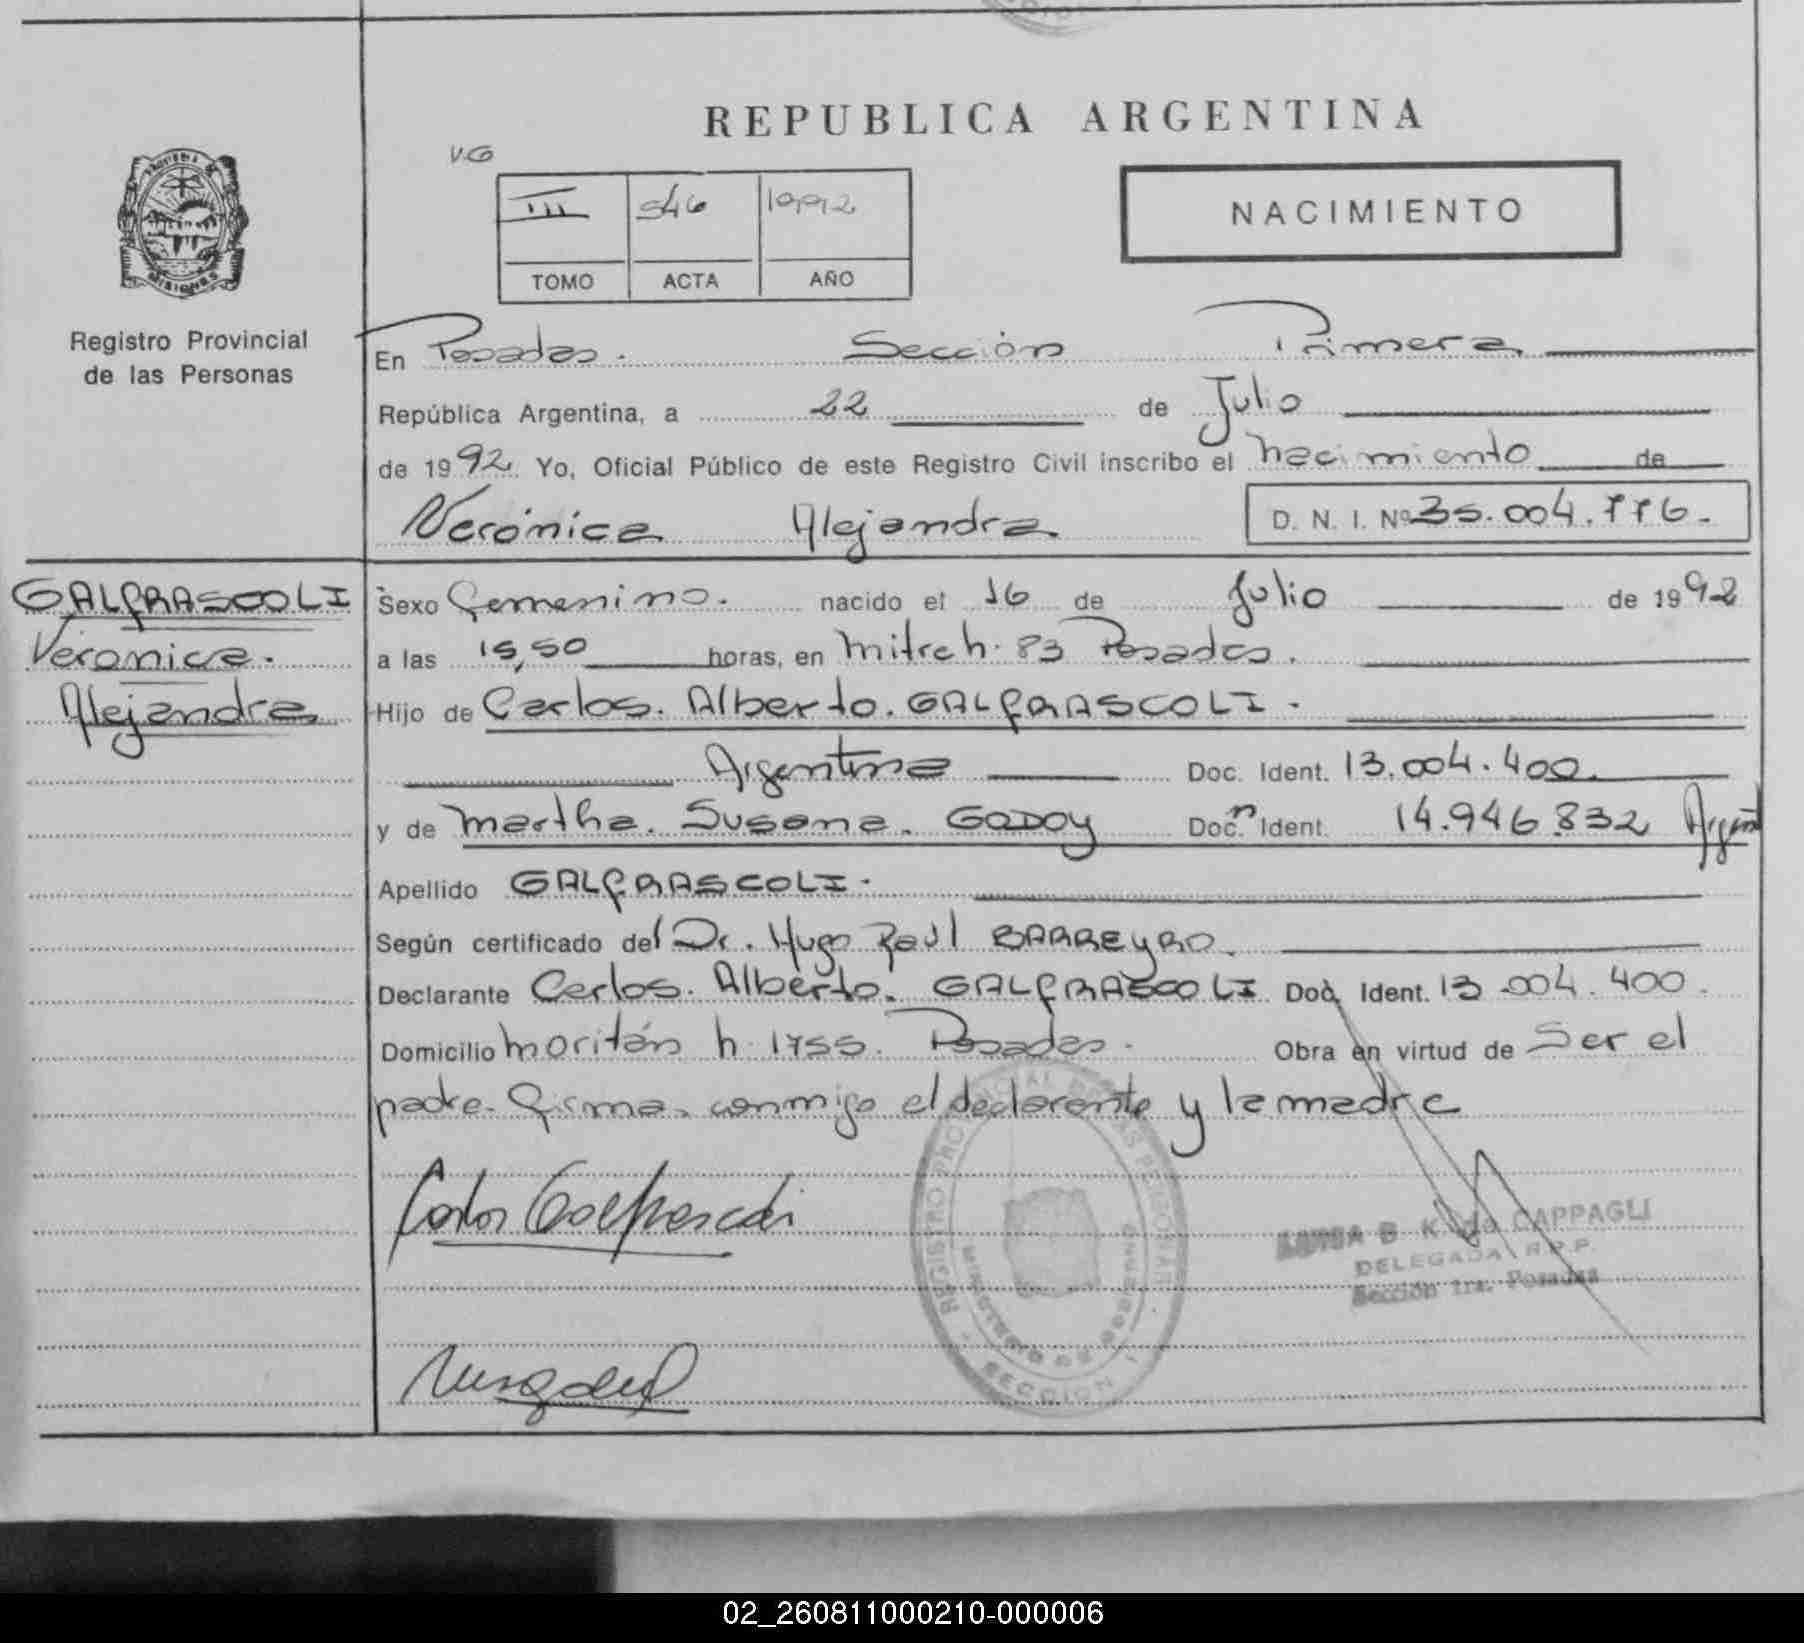 REPUBLICA ARGENTINA
V.G
III 546 1992
TOMO ACTA AÑO
NACIMIENTO
MISIONES
Registro Provincial
de las Personas
En Posadas. Sección Primera
República Argentina, a 22 de Julio
de 1992. Yo, Oficial Público de este Registro Civil inscribo el nacimiento de
Verónica Alejandra D. N. I. Nº 35.004.776.
GALFRASCOLI
Veronica.
Alejandra
Sexo Femenino. nacido el 16 de Julio de 1992
a las 15,50 horas, en Mitre h. 83 Posadas.
Hijo de Carlos. Alberto. GALFRASCOLI.
Argentina Doc. Ident. 13.004.400.
y de Martha. Susana. GODOY Doc. Ident. 14.946.832
Apellido GALFRASCOLI.
Según certificado del Dr. Hugo Raúl BARREYRO.
Declarante Carlos. Alberto. GALFRASCOLI Doc. Ident. 13.004.400.
Domicilio Moritán h 1755. Posadas. Obra en virtud de Ser el
padre. Firma. conmigo el declarante y la madre
Carlos Galfrascoli
REGISTRO PROVINCIAL DE LAS PERSONAS
MINISTERIO DE GOBIERNO
SECCION
B. K. de CAPPAGLI
DELEGADA R.P.P.
Sección 1ra. Posadas
02_260811000210-000006